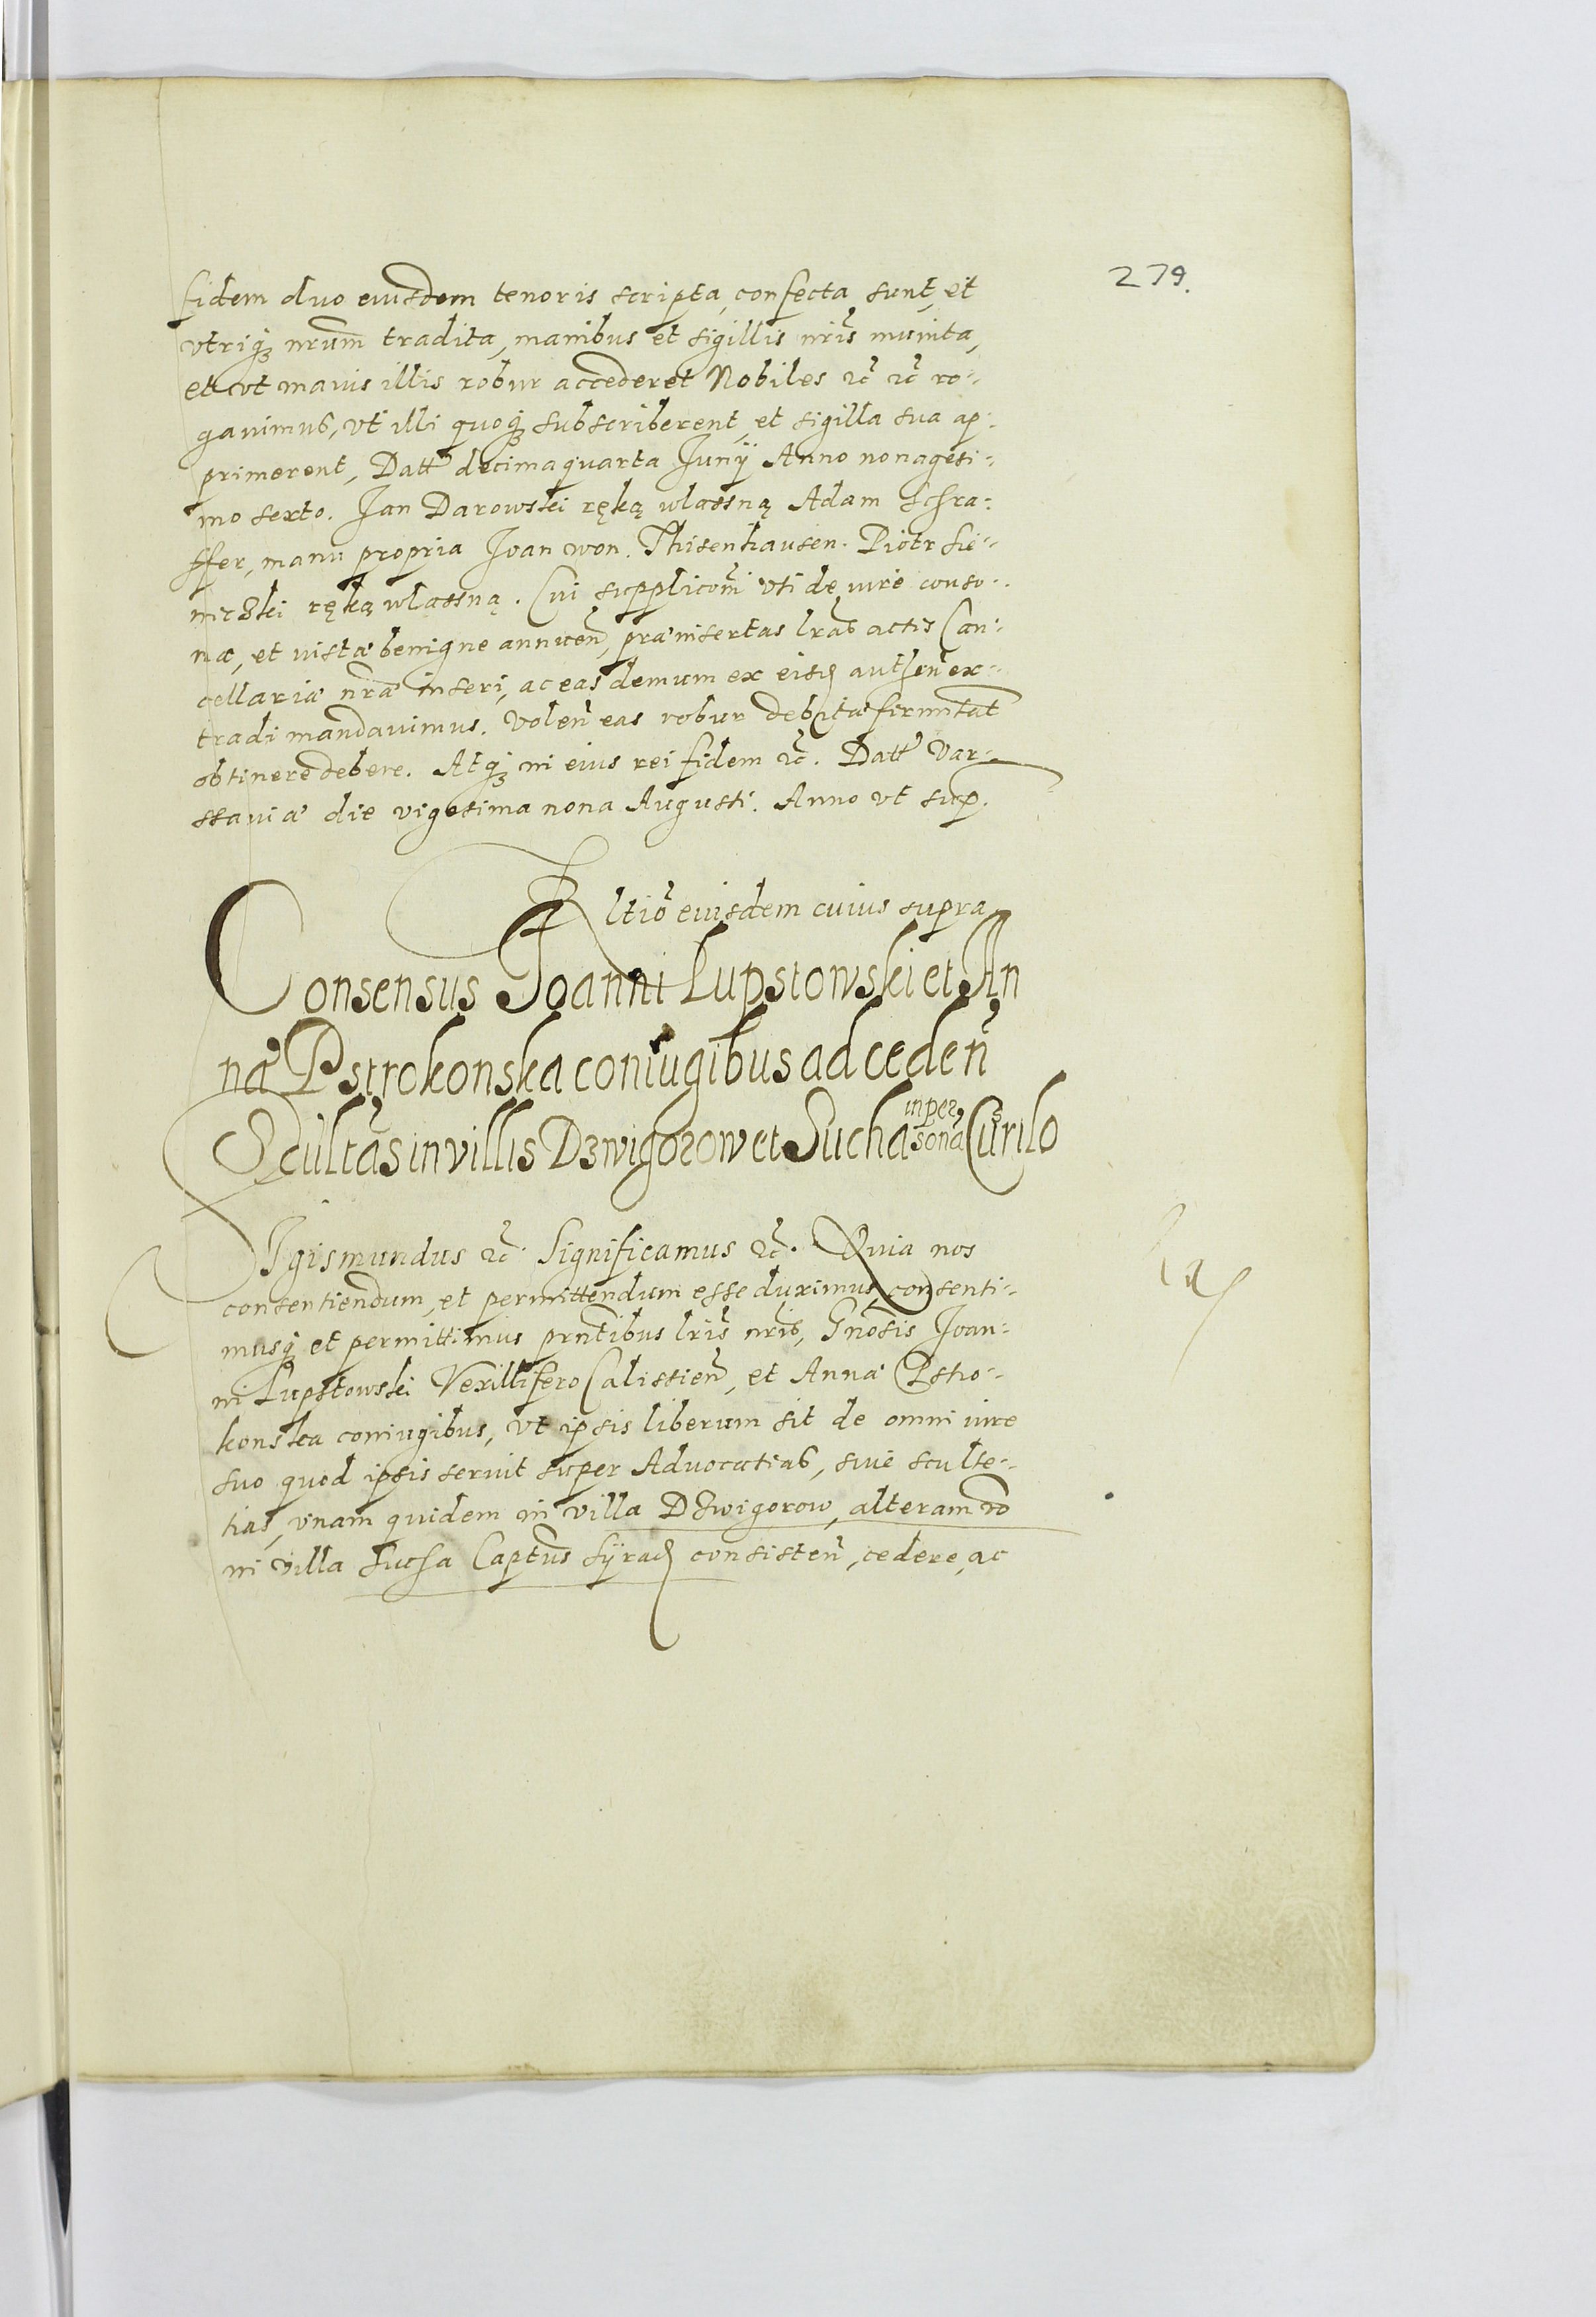 279.
fidem duo eiusdem tenoris scripta, confecta sunt, et
vtriq; nrum tradita, manibus et sigillis nris munita,
et vt maius illis robur accederet Nobiles etc etc ro-
gauimus, vt illi quoq; subscriberent, et sigilla sua ap-
primerent, Datt decima quarta Junÿ Anno nonagesi-
mo sexto. Jan Darowski ręką wlassną Adam Schra-
ffer, manu propria Joan won Thisenhausen. Piotr Sie-
niczki ręką wlassną. Cui suppliconi vti de iure conso-
næ, et iustæ benigne annuen, præinsertas lras actis Can-
cellariæ nræ inseri, ac eas demum ex eisd authen ex-
tradi mandauimus. Volen eas robur debitæ firmitat
obtinere debere. Atq; in eius rei fidem etc. Datt Var-
ssauiæ die vigesima nona Augusti. Anno vt sup.
Rltio eiusdem cuius supra
Consensus Joanni Lupstowski et An
næ Pstrokonska coniugibus ad ceden
Scultas in villis Dzwigorow et Sucha in per sona Curilo
Sigismundus etc Significamus etc. Quia nos
consentiendum, et permittendum esse duximus, consenti-
musq; et permittimus prntibus lris nris, Gnosis Joan-
ni Lupstowski Vexillifero Calissien, et Annæ Pstro-
konska coniugibus, vt ipsis liberum sit de omni iure
suo quod ipsis seruit super Aduocatias, siue sculte-
tias, vnam quidem in villa Dzwigorow, alteram vo
in villa Sucha Captus Syrad consisten, cedere, ac